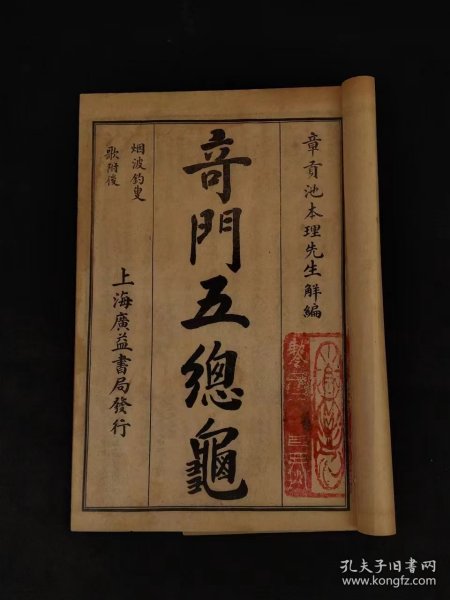 章貢池本理先生解編
奇門五總龜
烟波釣叟
歌附後
上海廣益書局發行
孔夫子旧书网
www.kongfz.com